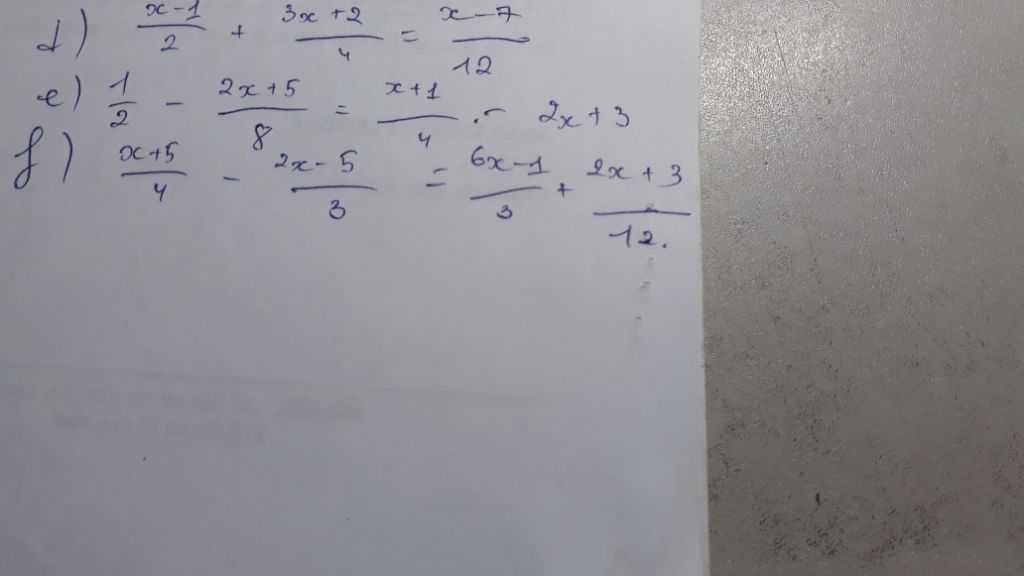 d) x-1/2 + 3x+2/4 = x-7/12
e) 1/2 - 2x+5/8 = x+1/4 - 2x+3
f) x+5/4 - 2x-5/3 = 6x-1/3 + 2x+3/12.